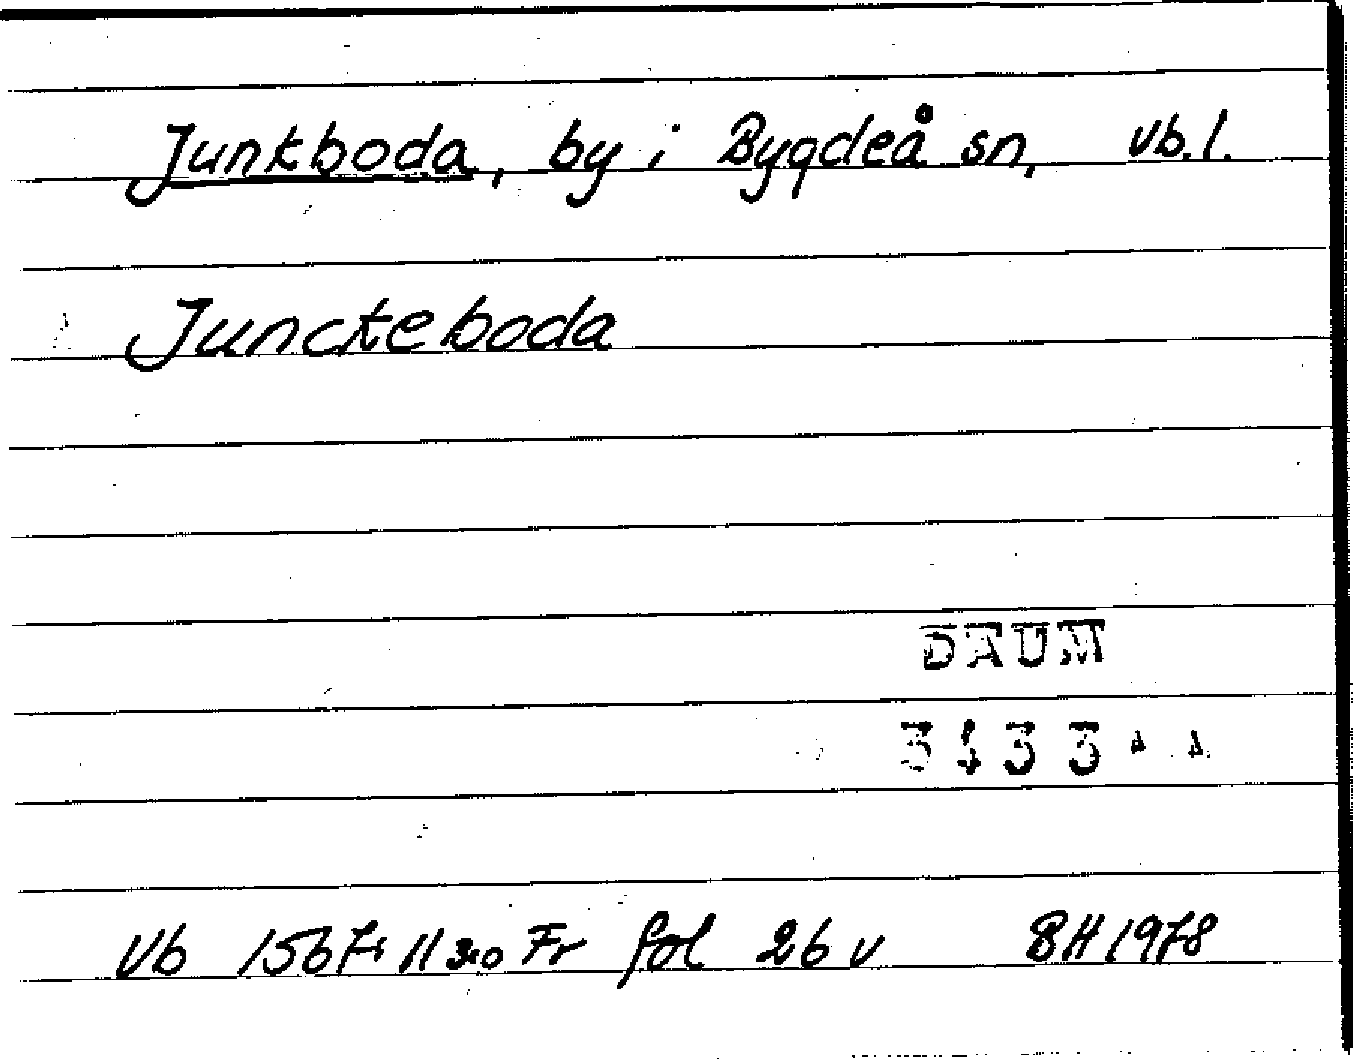 Junkboda, by i Bygdeå sn, Vb.l.
Junckeboda
DAUM
3433
Vb 1567:11 Fr fol 26 v BH 1978